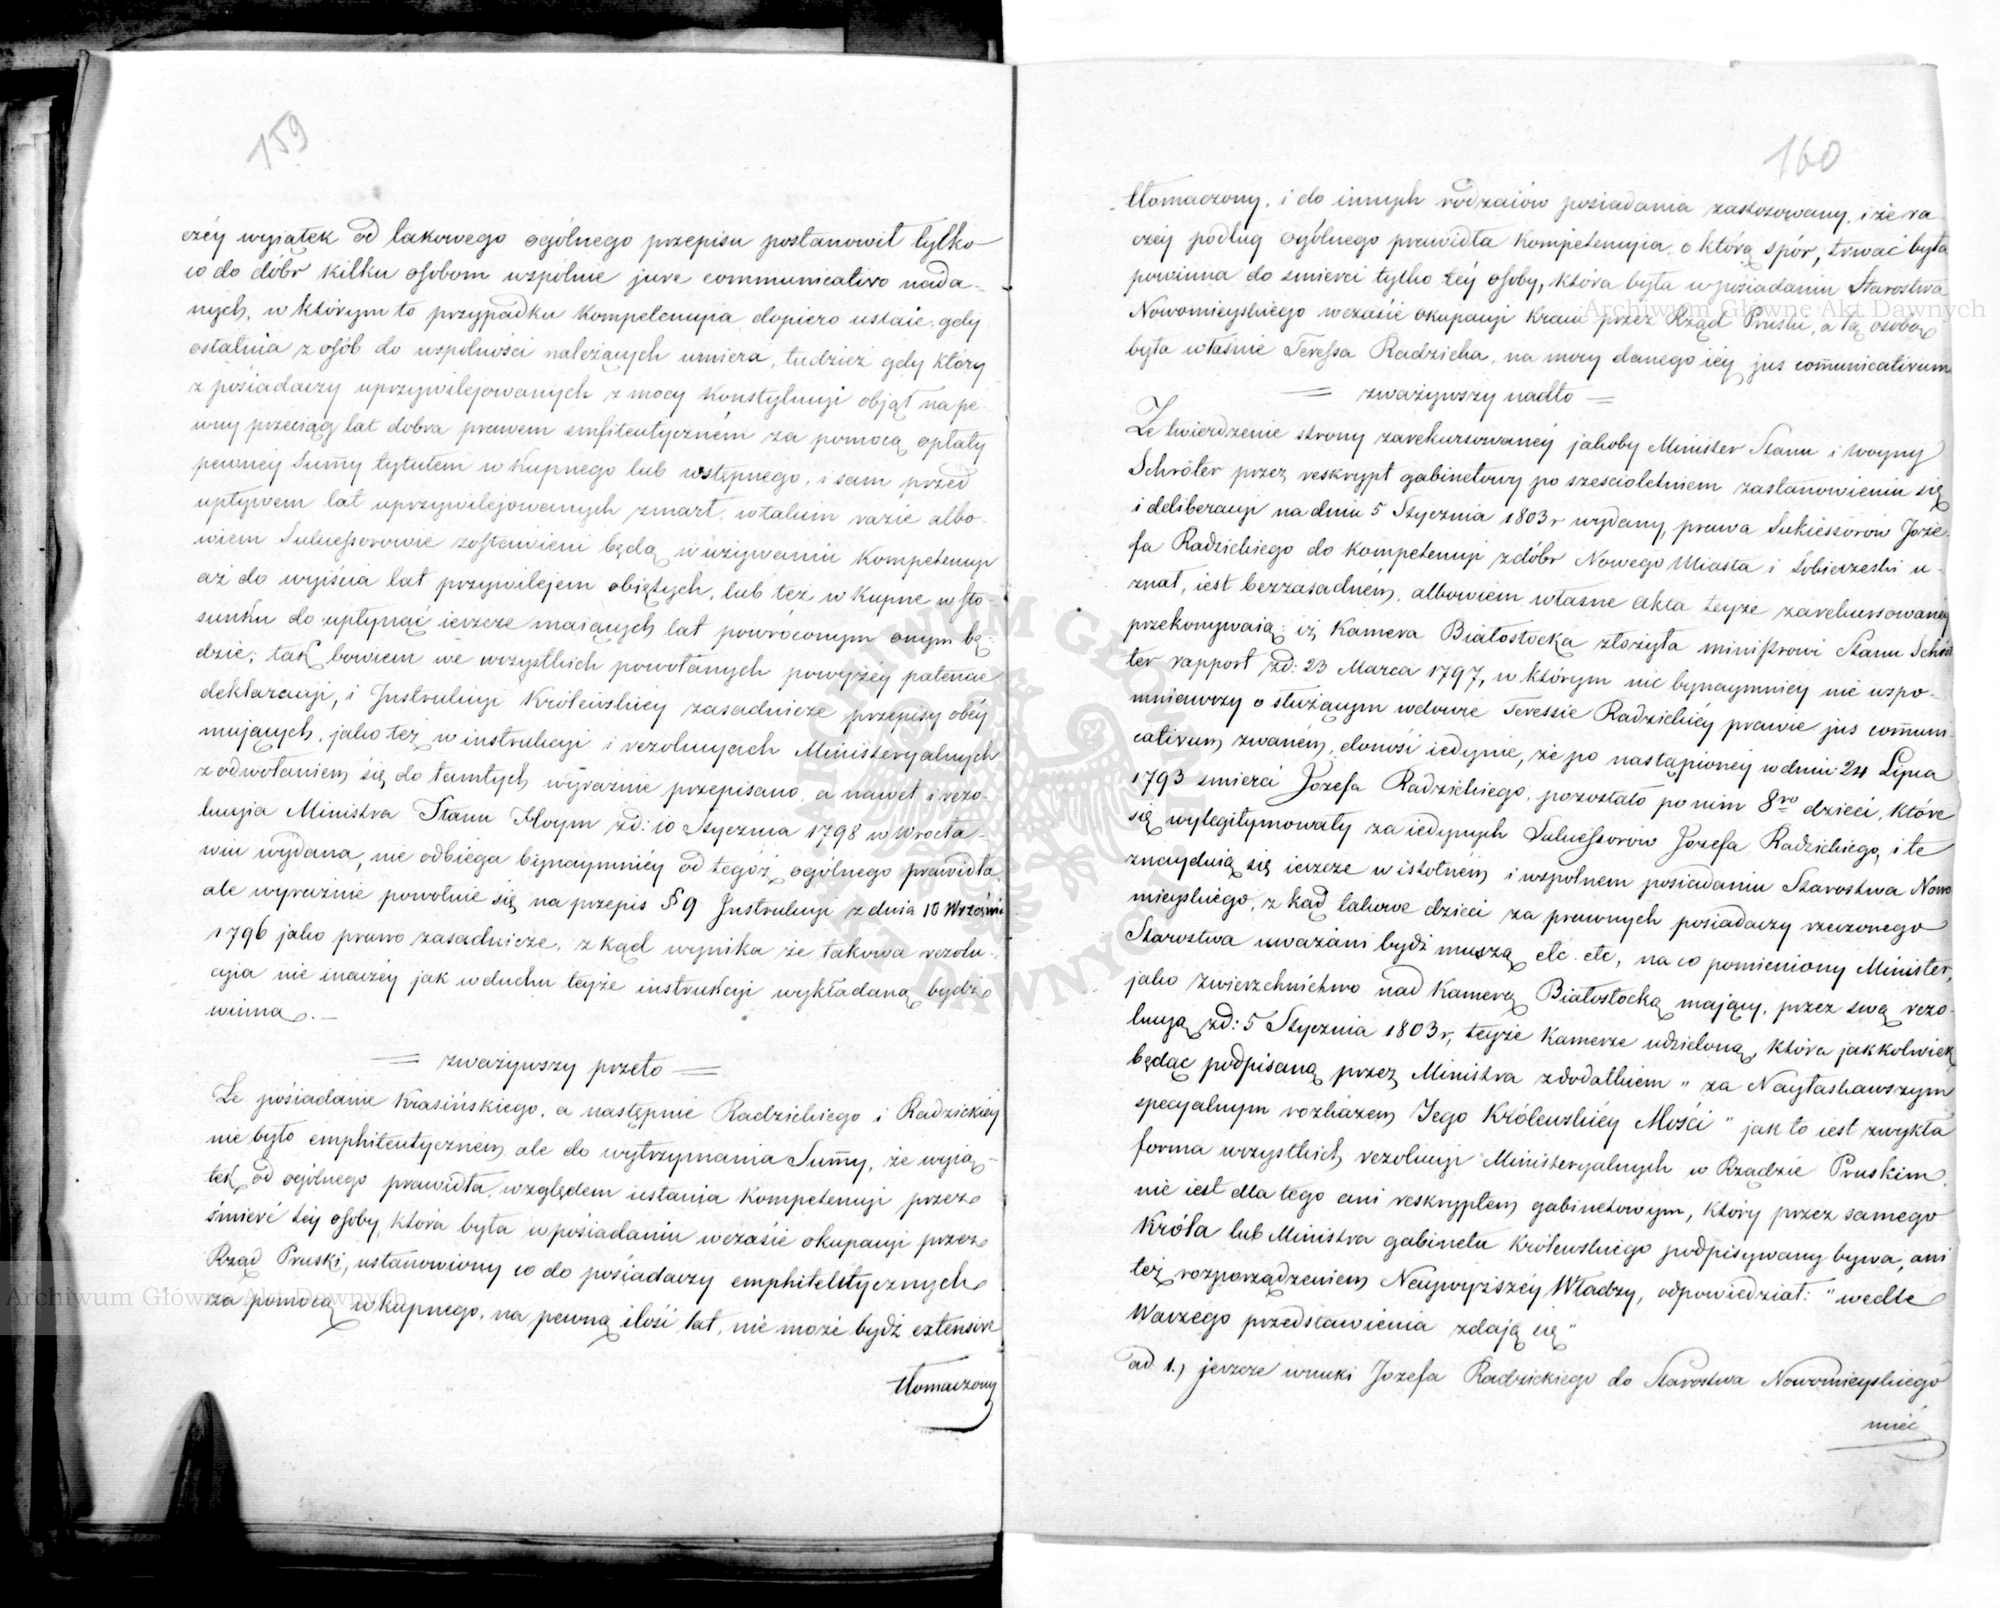 159
czéy wyiątek od takowego ogólnego przepisu postanowił tylko
co do dóbr kilku osobom wspólnie jure communicativo nada-
nych, w którym to przypadku Kompetencyia dopiero ustaie, gdy
ostatnia z osób do wspólności należących umiera, tudzież gdy który
z posiadaczy uprzywilejowanych z mocy Konstytucyi objął na pe-
wny przeciąg lat dobra prawem emfiteutyczném za pomocą opłaty
pewnéy Summy tytułem wkupnego lub wstępnego, i sam przed
upływem lat uprzywilejowanych zmarł, w takim razie albo-
wiem Sukcessorowie zostawieni będą w używaniu Kompetencyi
aż do wyiścia lat przywilejem obiętych, lub też w Kupne w sto-
sunku do upłynąć ieszcze maiących lat powróconym onym bę-
dzie; tak bowiem we wszystkich powołanych powyżéy patencie
deklaracyi, i Instrukcyi Królewskiéy zasadnicze przepisy obéy
mujących, jako też w instrukcyi i rezolucyach Ministeryalnych
z odwołaniem się do tamtych wyraźnie przepisano, a nawet i rezo-
lucyia Ministra Stanu Hoym zd: 10 Stycznia 1798 w Wrocła-
wiu wydana, nie odbiega bynaymniéy od tegoż ogólnego prawidła
ale wyraźnie powołuie się na przepis § 9 Instrukcyi z dnia 10 Wrześni
1796 jako prawo zasadnicze, z kąd wynika że takowa rezolu-
cyia nie inaczéy jak w duchu teyże instrukcyi wykładaną bydź
winna. —
= zważywszy przeto =
Że posiadanie Krasińskiego, a następnie Radzickiego i Radzickiéy
nie było emphiteutycznem, ale do wytrzymania Summy, że wyią-
tek od ogólnego prawidła względem ustania Kompetencyi przez
śmierć téy osoby, która była w posiadaniu wczasie okupacyi przez
Rząd Pruski, ustanowiony co do posiadaczy emphiteutycznych
za pomocą wkupnego, na pewną ilość lat, nie może bydź extensive
tłomaczony
160
tłomaczony, i do innych rodzaiów posiadania zastosowany, i że ra
czéy podług ogólnego prawidła Kompetencyia, o którą spór, trwać była
powinna do śmierci tylko téy osoby, która była w posiadaniu Starostwa
Nowomieyskiégo wczasie okupacyi Kraiu przez Rząd Pruski, a tą osobą
była właśnie Teressa Radzicka, na mocy danego iéy jus communicativum
= zważywszy nadto =
Że twierdzenie strony zarekursowanéy jakoby Minister Stanu i Woyny
Schröter przez reskrypt gabinetowy po sześcioletniem zastanowieniu się
i deliberacyi na dniu 5 Stycznia 1803 r wydany, prawa Sukcessorów Joze-
fa Radzickiego do Kompetencyi z dóbr Nowego Miasta i Sobierzeski u-
znał, iest bezzasadném, albowiem własne akta teyże zarekursowanéy
przekonywaią: iż Kamera Białostocka złożyła ministrowi Stanu Schrö
ter rapport zd: 23 Marca 1797, w którym nic bynaymniéy nie wspo-
mniawszy o służącym wdowie Teressie Radzickiéy prawie jus communi-
cativum zwaném, donosi iedynie, że po nastąpionéy w dniu 24 Lipca
1793 śmierci Jozefa Radzickiego, pozostało po nim 8ro dzieci, które
się wylegitymowały za iedynych Sukcessorów Jozefa Radzickiego, i te
znaydują się ieszcze w istotném i wspólnem posiadaniu Starostwa Nowo
mieyskiégo, z kąd takowe dzieci za prawnych posiadaczy rzeczonego
Starostwa uważani bydź muszą etc. etc, na co pomieniony Minister,
jako zwierzchnictwo nad Kamerą Białostocką mający, przez swą rezo-
lucyą zd: 5 Stycznia 1803 r, teyże Kamerze udzieloną, która jakkolwiek
będąc podpisaną przez Ministra z dodatkiem „ za Nayłaskawszym
specyalnym rozkazem Jego Królewskiéy Mości " jak to iest zwykła
forma wszystkich rezolucyi Ministeryalnych w Rządzie Pruskim,
nie iest dla tego ani reskryptem gabinetowym, który przez samego
Króla lub Ministra gabinetu Królewskiego podpisywany bywa, ani
też rozporządzeniem Naywyższéy Władzy, odpowiedział: „ wedle
Waszego przedstawienia zdają się "
ad 1.) jeszcze wnuki Jozefa Radzickiego do Starostwa Nowomieyskiego
mieć
Archiwum Główne Akt Dawnych
Archiwum Główne Akt Dawnych